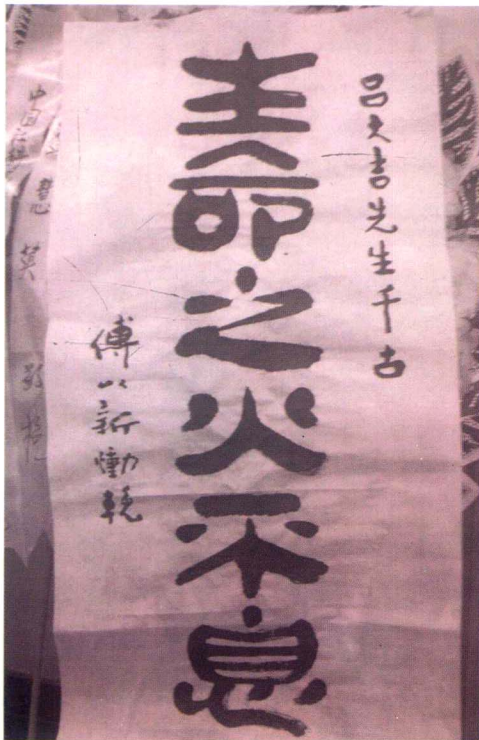 呂大吉先生千古
生命之火不息
傅以新慟輓